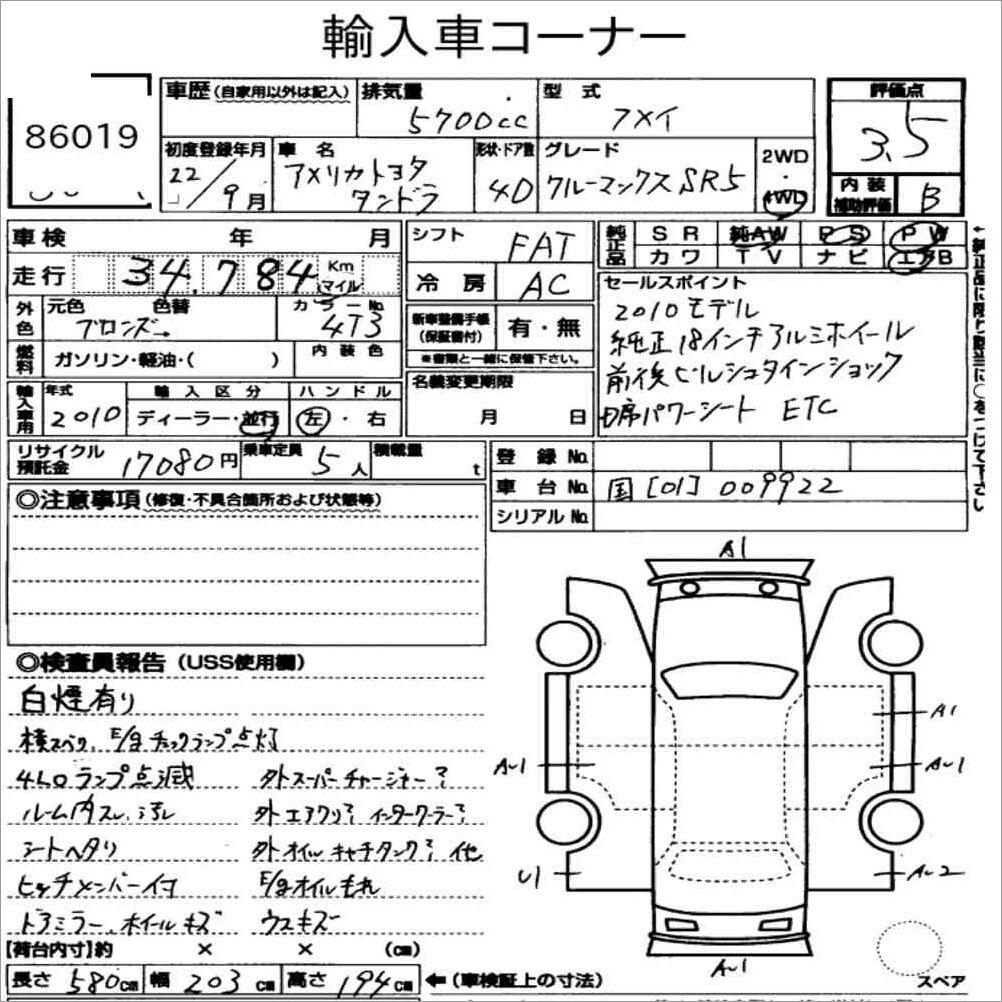 輸入車コーナー
86019
車歴(自家用以外は記入)
排気量
5700cc
型式
アメイ
評価点
3.5
初度登録年月
22/9月
車名
アメリカトヨタ
タンドラ
形状・ドア数
4D
グレード
クルーマックスSR5
2WD
・
4WD
内装
補助評価
B
車検 年 月
走行 34,784 Km マイル
シフト FAT
冷房 AC
純正品
SR 純AW PS PW
カワ TV ナビ エアB
外色
元色 色替
ブロンズ
カラーNo.
4T3
燃料
ガソリン・軽油・( )
内装色
新車整備手帳
(保証書付)
有・無
※書類と一緒に保管下さい。
セールスポイント
2010モデル
純正18インチアルミホイール
前後ビルシュタインショック
D席パワーシート ETC
輸入車用
年式
2010
輸入区分
ディーラー・並行
ハンドル
左・右
名義変更期限
月 日
リサイクル
預託金
17080円
乗車定員
5人
積載量
t
登録No.
車台No. 国[01]009922
シリアルNo.
◎注意事項(修復・不具合箇所および状態等)
◎検査員報告(USS使用欄)
白煙有り
横スベリ、E/gチェックランプ点灯
4LOランプ点滅 外スーパーチャージャー?
ルーム内スレ、汚レ 外エアクリ?インタークーラー?
シートヘタリ 外オイルキャチタンク?他
ヒッチメンバー付 E/gオイルもれ
ドアミラー、ホイールキズ ウスキズ
A1
A1
A-1
A-1
U1
A-2
A-1
【荷台内寸】約 × × (cm)
長さ 580cm 幅 203cm 高さ 194cm
←(車検証上の寸法)
スペア